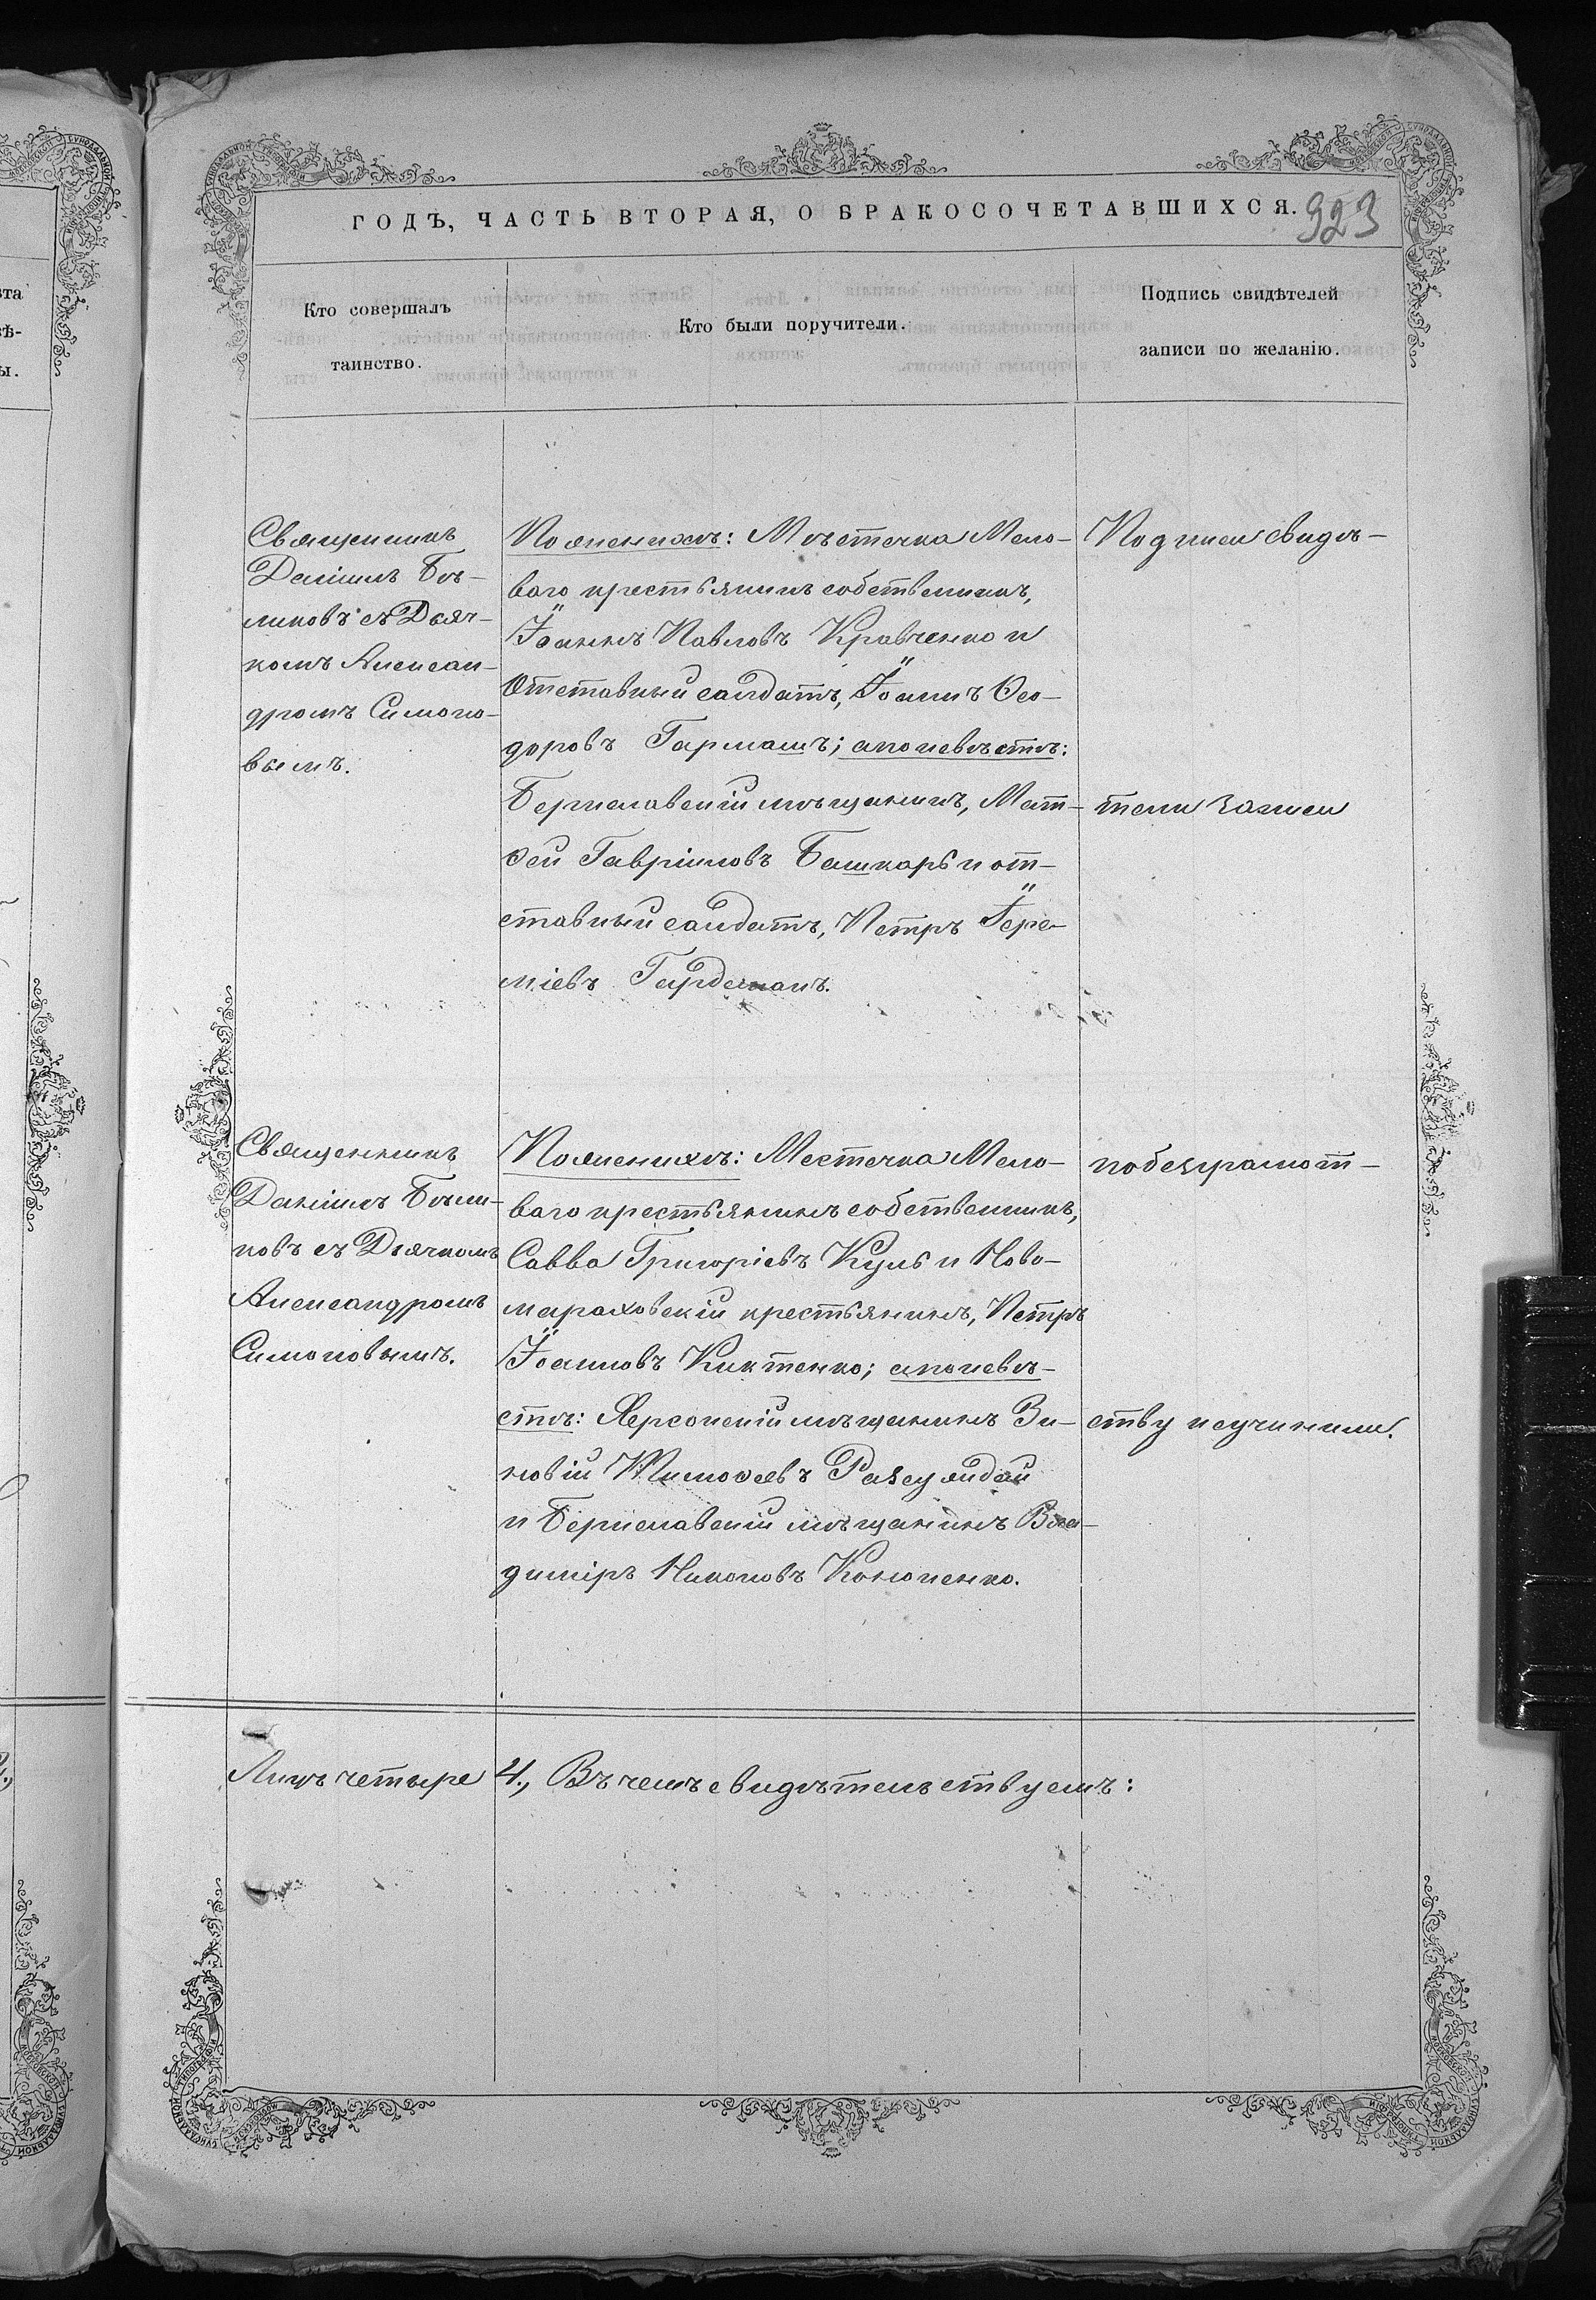 ГОДЪ, ЧАСТЬ ВТОРАЯ, О БРАКОСОЧЕТАВШИХСЯ.
923
Кто совершалъ
таинство.
Кто были поручители.
Подпись свидѣтелей
записи по желанію.
Священникъ
Даніилъ Бѣ-
ликовъ съ Дьяч-
комъ Алексан-
дромъ Симоно-
вымъ.
По женихѣ: Мѣстечка Мело-
ваго крестьянинъ собственникъ,
Іоаннъ Павловъ Кравченко и
Отставный салдатъ, Іоаннъ Ѳео-
доровъ Гармашъ; а по невѣстѣ:
Бериславскій мѣщанинъ, Мат-
ѳей Гавріиловъ Башкарь и от-
ставный салдатъ, Петръ Іере-
міевъ Гардеманъ.
Подписи свидѣ-
тели записи
Священникъ
Даніилъ Бѣли-
ковъ съ Дьячкомъ
Александромъ
Симоновымъ.
По женихѣ: Местечка Мело-
ваго крестьянинъ собственникъ,
Савва Григоріевъ Куль и Ново-
мараховскій крестьянинъ, Петръ
Іоанновъ Киктенко; а по невѣ-
стѣ: Херсонскій мѣщанинъ Зи-
новій Тимоѳеевъ
и Бериславскій мѣщанинъ Вла-
диміръ Никоновъ Кононенко.
по безграмот-
ству не учинили.
Лицъ четыре 4., Въ чемъ свидѣтельствуемъ: